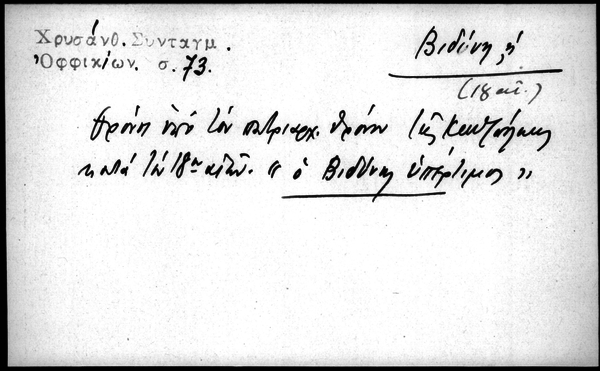 Χρυσάνθ. Συνταγμ.
Ὀφφικίων. σ. 73.
Βιδύνη, ἡ
(18 αἰ.)
θρόνοι ὑπὸ τὸν πατριαρχ. θρόνον τῆς
κατὰ τὸν 18ον αἰῶν. « ὁ Βιδύνης ὑπέρτιμος »